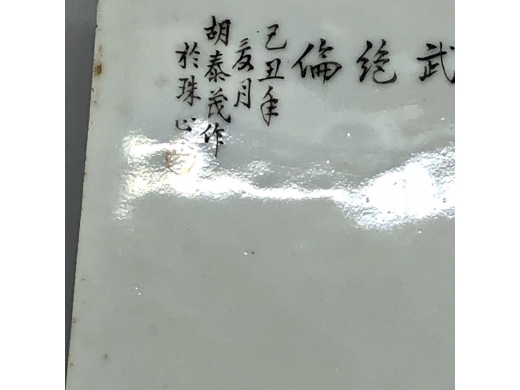 武絶倫
己丑年
夏月
胡泰茂作
於珠山